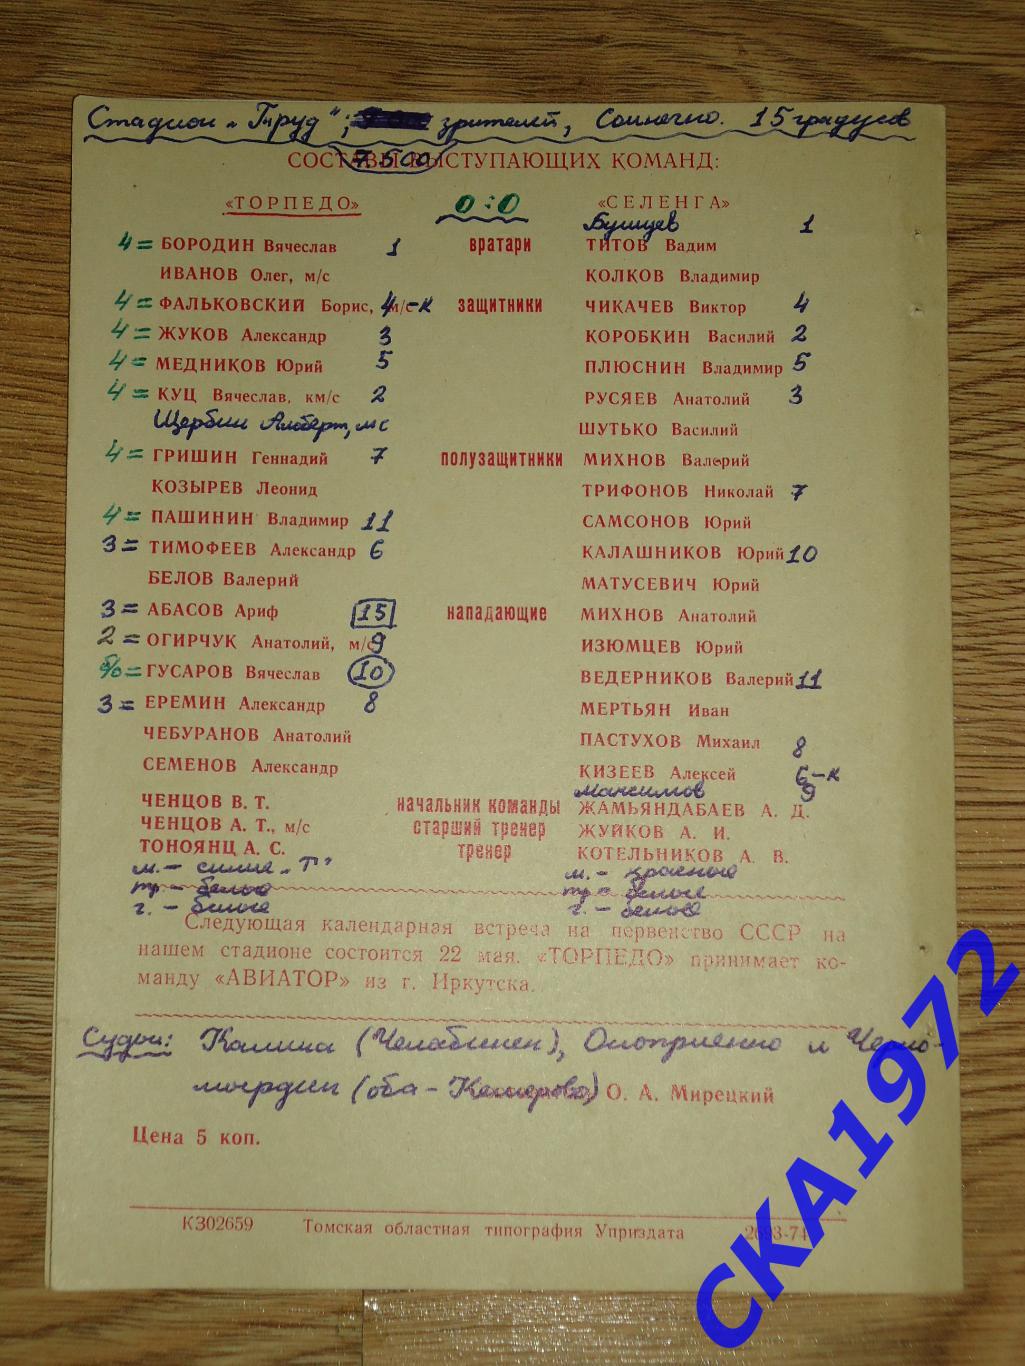 Стадион „Труд"; зрителей, Солнечно. 15 градусов
7.500
СОСТАВЫ ВЫСТУПАЮЩИХ КОМАНД:
«ТОРПЕДО» 0:0 «СЕЛЕНГА»
1
4= БОРОДИН Вячеслав 1 вратари ТИТОВ Вадим
ИВАНОВ Олег, м/с КОЛКОВ Владимир
4= ФАЛЬКОВСКИЙ Борис, м/с 4-к защитники ЧИКАЧЕВ Виктор 4
4= ЖУКОВ Александр 3 КОРОБКИН Василий 2
4= МЕДНИКОВ Юрий 5 ПЛЮСНИН Владимир 5
4= КУЦ Вячеслав, км/с 2 РУСЯЕВ Анатолий 3
Щербин Альберт, мс ШУТЬКО Василий
4= ГРИШИН Геннадий 7 полузащитники МИХНОВ Валерий
КОЗЫРЕВ Леонид ТРИФОНОВ Николай 7
4= ПАШИНИН Владимир 11 САМСОНОВ Юрий
3= ТИМОФЕЕВ Александр 6 КАЛАШНИКОВ Юрий 10
БЕЛОВ Валерий МАТУСЕВИЧ Юрий
3= АБАСОВ Ариф 15 нападающие МИХНОВ Анатолий
2= ОГИРЧУК Анатолий, м/с 9 ИЗЮМЦЕВ Юрий
б/о= ГУСАРОВ Вячеслав 10 ВЕДЕРНИКОВ Валерий 11
3= ЕРЕМИН Александр 8 МЕРТЬЯН Иван
ЧЕБУРАНОВ Анатолий ПАСТУХОВ Михаил 8
СЕМЕНОВ Александр КИЗЕЕВ Алексей 6-к
Максимов 9
ЧЕНЦОВ В. Т. начальник команды ЖАМЬЯНДАБАЕВ А. Д.
ЧЕНЦОВ А. Т., м/с старший тренер ЖУЙКОВ А. И.
ТОНОЯНЦ А. С. тренер КОТЕЛЬНИКОВ А. В.
м. - синие „Т" м. - красные
тр - белые тр - белые
г. - белые г. - белые
Следующая календарная встреча на первенство СССР на
нашем стадионе состоится 22 мая. «ТОРПЕДО» принимает ко-
манду «АВИАТОР» из г. Иркутска.
Судьи: Калина (Челябинск), Оноприенко и Черно-
мордин (оба - Кемерово) О. А. Мирецкий
Цена 5 коп.
КЗ02659 Томская областная типография Уприздата 2693-74
СКА1972